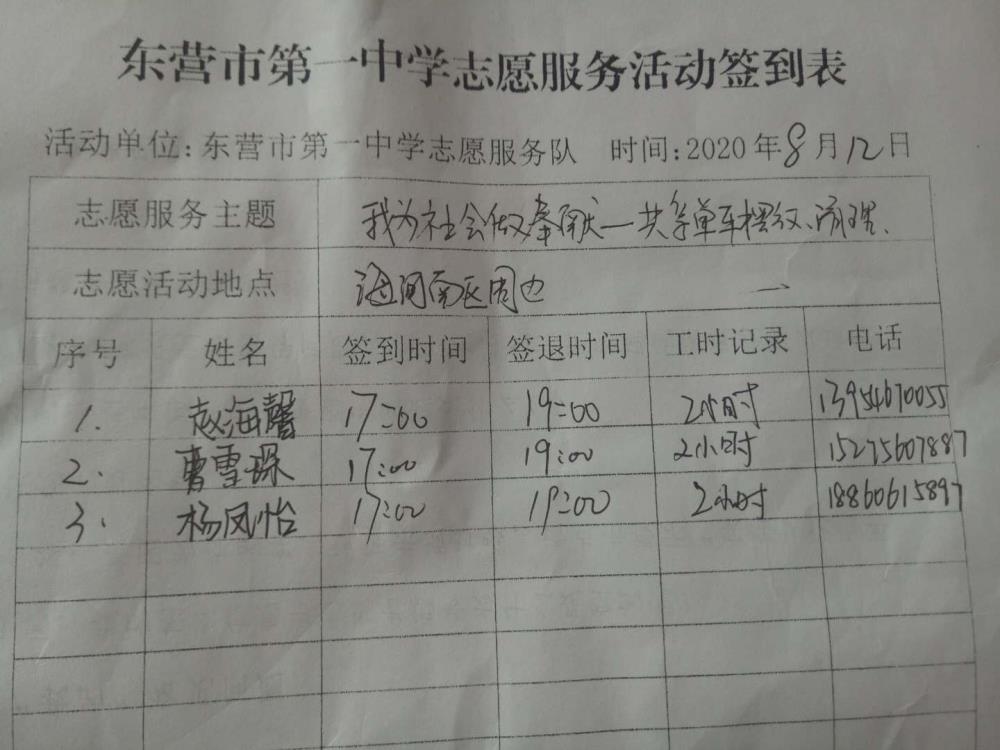 东营市第一中学志愿服务活动签到表
活动单位:东营市第一中学志愿服务队 时间:2020年8月12日
志愿服务主题 我为社会做奉献一共享单车摆放、清理、
志愿活动地点 南区周边
序号 姓名 签到时间 签退时间 工时记录 电话
1. 赵海馨 17:00 19:00 2小时 13954670055
2. 曹雪琛 17:00 19:00 2小时 15275607887
3. 杨凤怡 17:00 19:00 2小时 18860615897